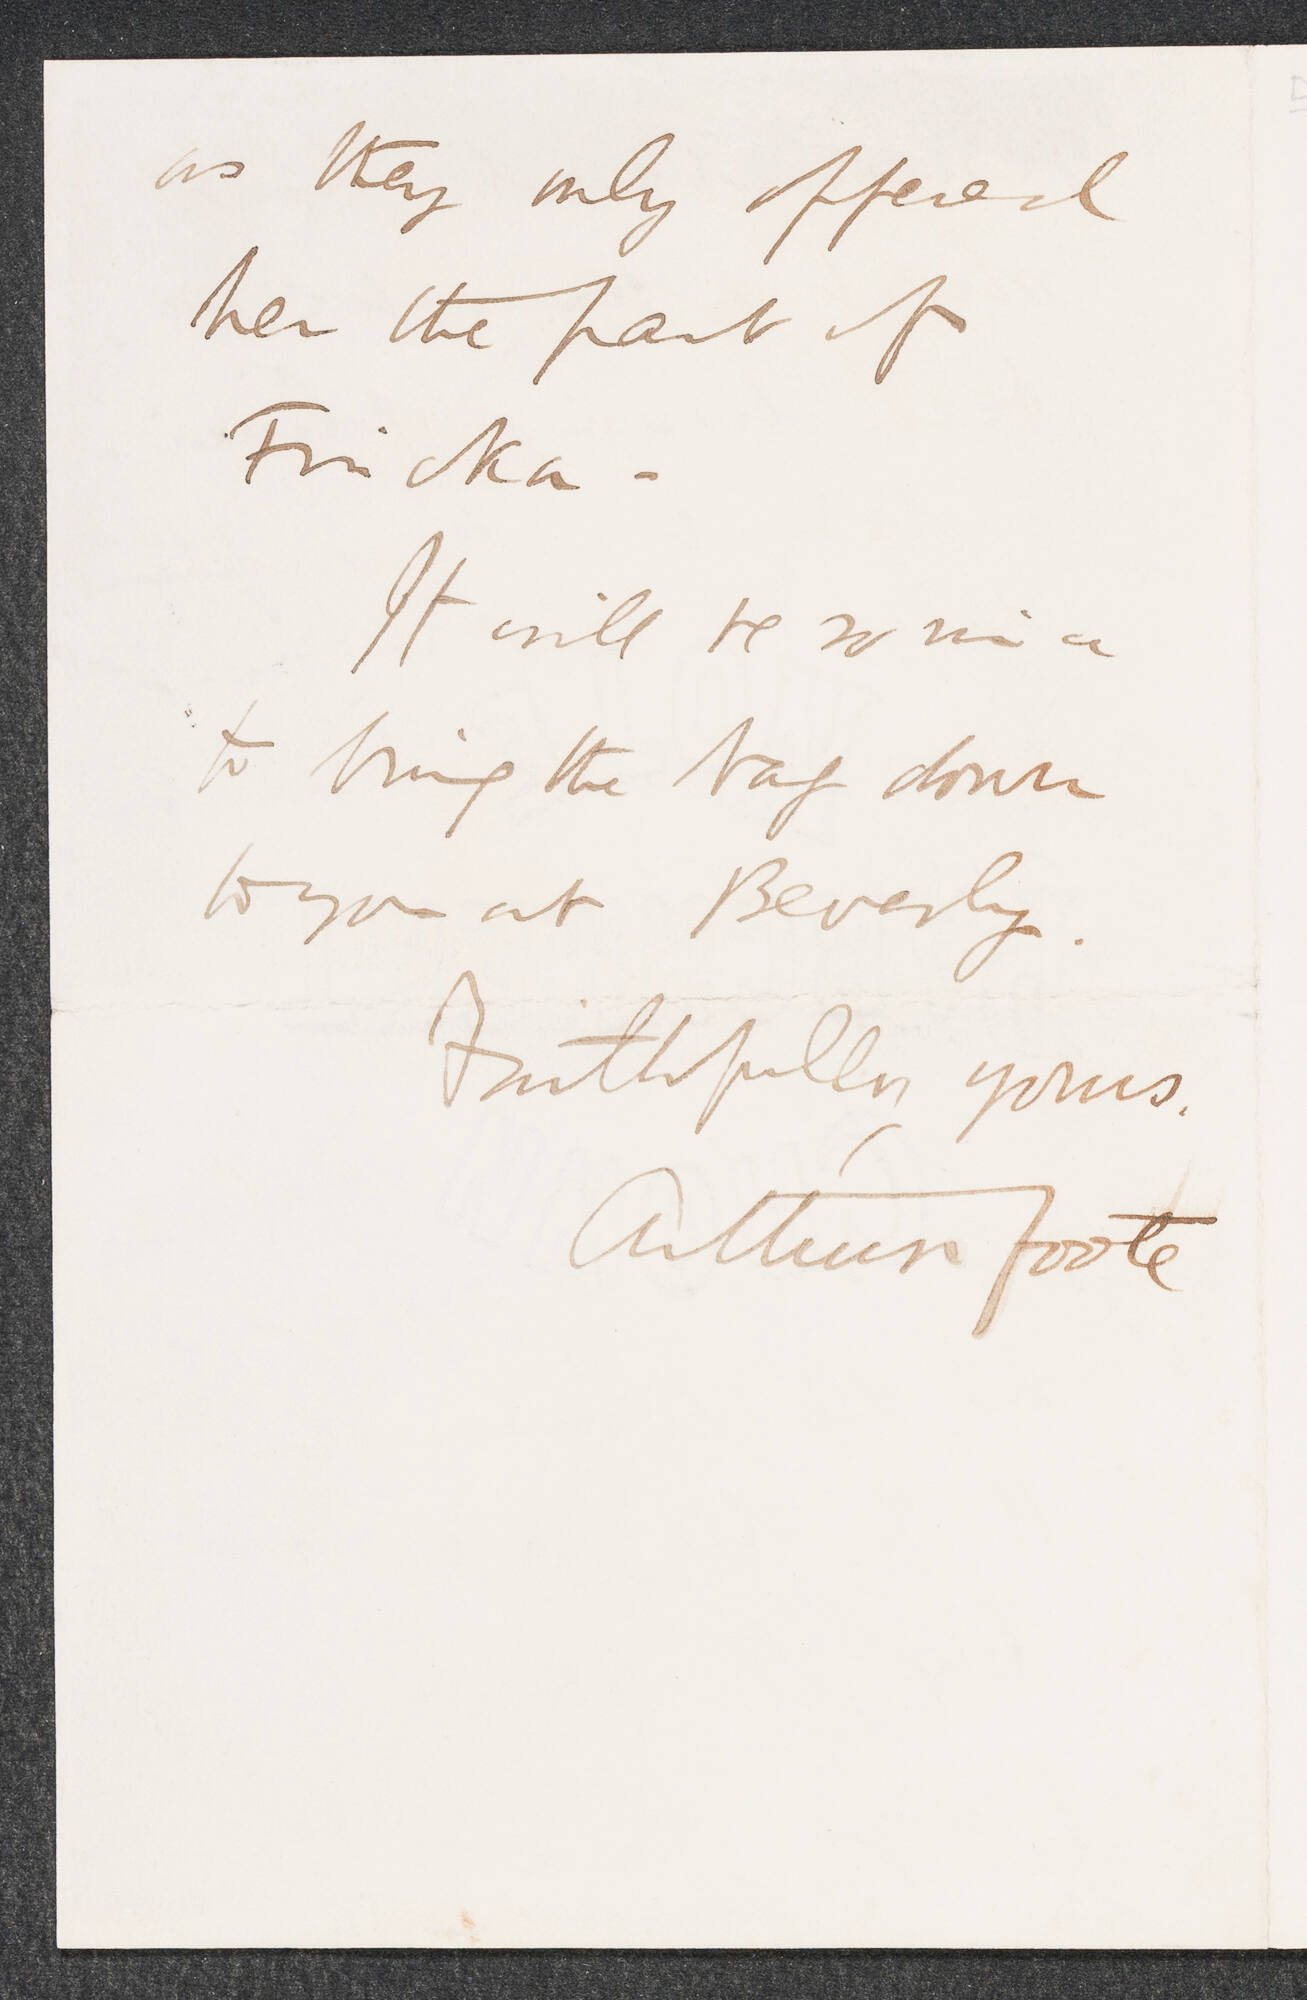 as they only offered
her the part of
Fricka -
It will be so nice
to bring the bag down
to you at Beverly.
Faithfully yours,
Arthur Foote